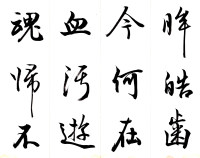 眸皓齒
今何在
血污遊
魂帰不